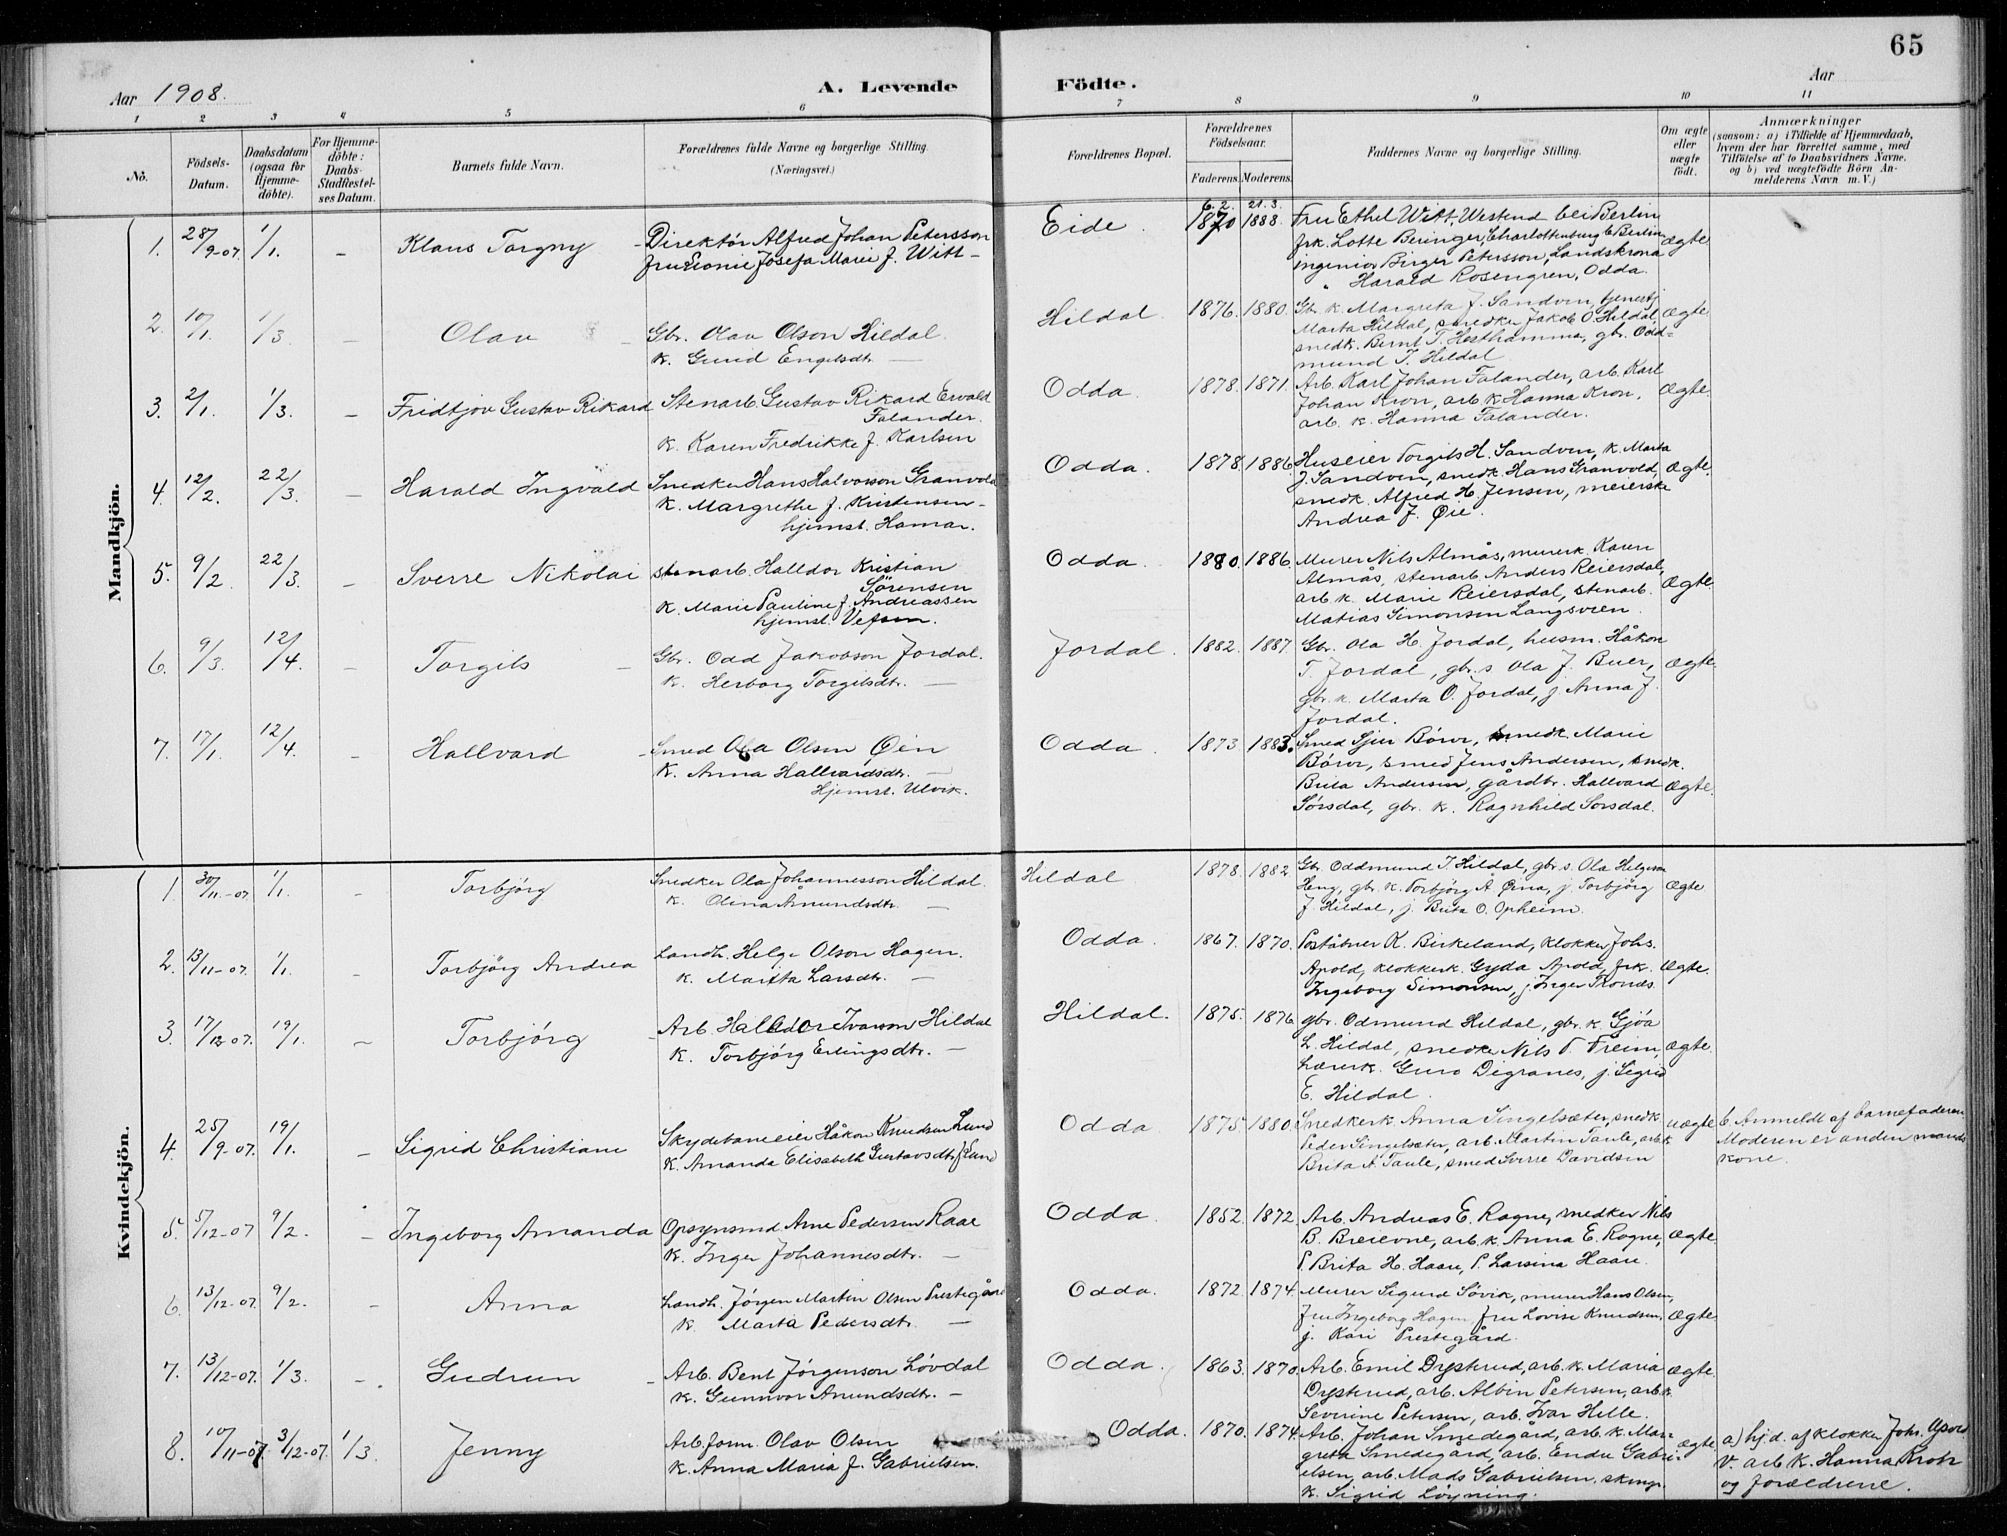 65
Aar 1908.
A. Levende Födte.
Aar
1 2 3 4 5 6 7 8 9 10 11
No.
Födsels-Datum.
Daabsdatum (ogsaa for Hjemme-döbte).
For Hjemme-döbte: Daabs-Stadfæstel-ses Datum.
Barnets fulde Navn.
Forældrenes fulde Navne og borgerlige Stilling.
(Næringsvei.)
Forældrenes Bopæl.
Forældrenes Födselsaar.
Faderens. Moderens.
Faddernes Navne og borgerlige Stilling.
Om ægte eller uægte födt.
Anmærkninger
(saasom: a) i Tilfælde af Hjemmedaab,
hvem der har forrettet samme, med
Tilföielse af to Daabsvidners Navne,
og b) ved uægtefödte Börn An-
melderens Navn m. V.)
Mandkjön.
1. 28/9-07. 1/1. - Klaus Torgny - Direktör Alfred Johan Petersson
fru Leonie Josefa Marie f. Witt -
Eide. 6.2. 1870 21.3. 1888. Fru Ethel Witt, Westend bei Berlin
frk. Lotte Beringer, Charlottenburg b Berlin
ingeniør Birger Petersson, Landskrona
" Harald Rosengren, Odda.
Ægte
2. 10/1. 1/3. - Olav - Gbr. Olav Olson Hildal.
K. Guud Engelsdtr. -
Hildal. 1876. 1880. Gbr. k. Margreta J. Sandven, tjenestj
Marta Hildal, snedker Jakob O. Hildal,
snedk. Bernt T. Hesthamma, gbr. Odd=
mund T. Hildal
Ægte
3. 2/1. 1/3. - Fridtjov Gustav Rikard Stenarb. Gustav Rikard Ervald
Falander.
K. Karen Fredrikke f. Karlsen
Odda. 1878. 1871. Arb. Karl Johan Falander, arb. Karl
Johan Kron, arb. k. Hanna Kron,
arb. k. Hanna Falander.
Ægte
4. 12/2. 22/3. - Harald Ingvald Snedker Hans Halvorson Granvold
K. Margrethe f. Kristensen -
hjemst. Hamar.
Odda. 1878 1886. Huseier Torgils H. Sandven, k. Marta
J. Sandven, snedk. Hans Granvold,
snedk. Alfred H. Jensen, meierske
Andrea J. Øie.
Ægte.
5. 9/2. 22/3. - Sverre Nikolai stenarb. Halldor Kristian
Sörensen
K. Marie Pauline f. Andreassen
hjemst. Vefsen.
Odda. 1880. 1886. Murer Nils Almås, murerk. Karen
Almås, stenarb. Anders Reiersdal,
arb. k. Marie Reiersdal, stenarb.
Matias Simonsen Langsveen.
Ægte.
6. 9/3. 12/4. - Torgils - Gbr. Odd Jakobson Jordal.
K. Herborg Torgilsdtr. -
Jordal. 1882. 1887. Gbr. Ola H. Jordal, husm. Håkon
T. Jordal, gbr. s. Ola J. Buer,
gbr. k. Marta O. Jordal, j. Anna J.
Jordal.
Ægte
7. 17/1. 12/4. - Hallvard - Smed Ola Olsen Øen
K. Anna Hallvardsdtr. -
Hjemst. Ulvik.
Odda. 1873 1883. Smed Sjur Börve, smedk. Marie
Börve, smed Jens Andersen, smedk.
Brita Andersen, gårdbr. Hallvard
Sörsdal, gbr. k. Ragnhild Sorsdal.
Ægte.
Kvindekjön.
1. 30/11-07. 1/1. - Torbjörg Snedker Ola Johannesson Hildal.
K. Olina Amundsdtr. -
Hildal 1878. 1882 Gbr. Oddmund T. Hildal, gbr. s. Ola Helgeson
Heng, gbr. k. Torbjörg A. Øina, j. Torbjörg
J. Hildal, j. Brita O. Opheim.
Ægte
2. 13/11-07. 1/1. - Torbjörg Andrea Landh. Helge Olson Hagen.
K. Marita Larsdtr. -
Odda. 1867. 1870. Poståbner K. Birkeland, klokker Johs.
Apold, klokkerk. Gyda Apold, frk.
Ingeborg Simonsen, j. Inger Tronds
Ægte.
3. 17/12-07. 19/1. - Torbjörg - Arb. Halldor Ivarson Hildal
K. Torbjörg Erlingsdtr. -
Hildal. 1875. 1876 gbr. Odmund Hildal, gbr. k. Gjöa
L. Hildal, snedker Nils T. Freim,
lærerk. Guro Digranes, j. Sigrid
E. Hildal.
Ægte.
4. 25/9-07. 19/1. - Sigrid Christiane Skydebaneeier Håkon Knudsen Lund
K. Amanda Elisabeth Gustavsdtr. f. Lund
Odda 1875. 1880 Snedkerk. Anna Singelsæter, snedk
Peder Singelsæter, arb. Martin Taule, arb. k
Brita A. Taule, smed Sverre Davidsen
uægte b. Anmeldt af barnefaderen
Moderen er anden mands
kone.
5. 5/12-07 9/2. - Ingeborg Amanda Opsynsmd Arne Pedersen Raae
K. Inger Johannesdtr. -
Odda. 1852. 1872. Arb. Andreas E. Rogne, snedker Nils
B. Breievne, arb. k. Anna E. Rogne,
P. Brita H. Haare, P. Larsina Haare.
Ægte.
6. 13/12-07. 9/2. - Anna Landh. Jörgen Martin Olsen Prestegård
K. Marta Pedersdtr. -
Odda. 1872. 1874. Murer Sigurd Sövik, murer Hans Olsen,
fru Ingeborg Hagen, fru Lovise Knudsen,
j. Kari Prestegård.
Ægte
7. 13/12-07. 1/3. - Gudrun - Arb. Bent Jörgenson Lövdal
K. Gunnvor Amundsdtr. -
Odda. 1863. 1870. Arb. Emil Drystrud, arb. k. Maria
Drystrud, arb. Albin Petersen, arb. k.
Severine Petersen, arb. Ivar Helle.
Ægte.
8. 10/11-07 3/12-07. 1/3. Jenny Arb.form. Olav Olsen
K. Anna Maria f. Gabrielsen.
Odda. 1870. 1874. Arb. Johan Smedegård, arb. k. Mar-
greta Smedegård, arb. Endre Gabri-
elsen, arb. Mads Gabrielsen,
k. Sigrid Löyning.
Ægte a) hj.d. af klokker Johs. Apold
V. arb k. Hanna Krohn
og forældrene.